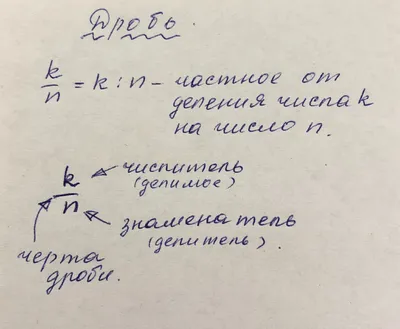 Дробь.
k/n = k : n – частное от
деления числа k
на число n.
k числитель
(делимое)
n знаменатель
(делитель).
черта
дроби.